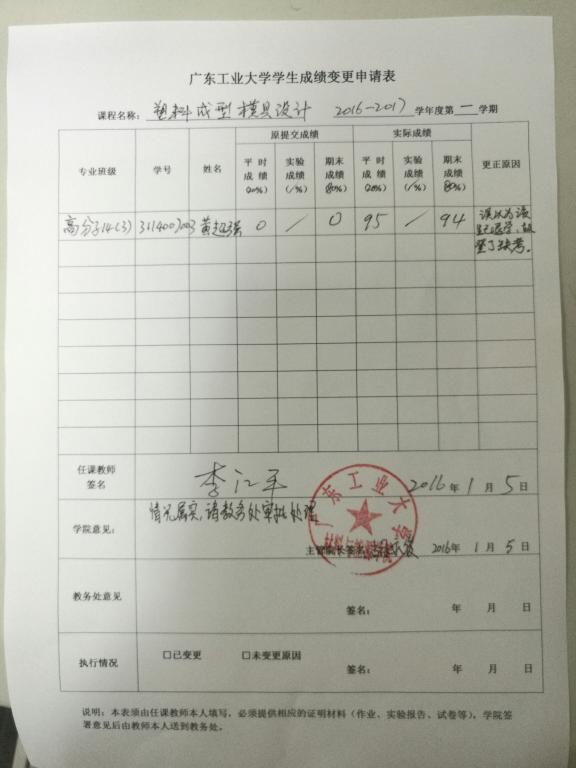 广东工业大学学生成绩变更申请表
课程名称: 塑料成型模具设计 2016-2017 学年度第一学期
专业班级 学号 姓名 原提交成绩 实际成绩 更正原因
平时成绩(20%) 实验成绩(/%) 期末成绩(80%) 平时成绩(20%) 实验成绩(/%) 期末成绩(80%)
高分子14(3) 3114007003 黄超强 0 / 0 95 / 94 误以为该
生已退学,故
登了缺考。
任课教师
签名 李江平 2016年1月5日
学院意见: 情况属实,请教务处审批处理
广东工业大学
主管院长签名: 2016年1月5日
教务处意见
签名: 年 月 日
执行情况 □已变更 □未变更原因
签名: 年 月 日
说明:本表须由任课教师本人填写,必须提供相应的证明材料(作业、实验报告、试卷等),学院签
署意见后由教师本人送到教务处。